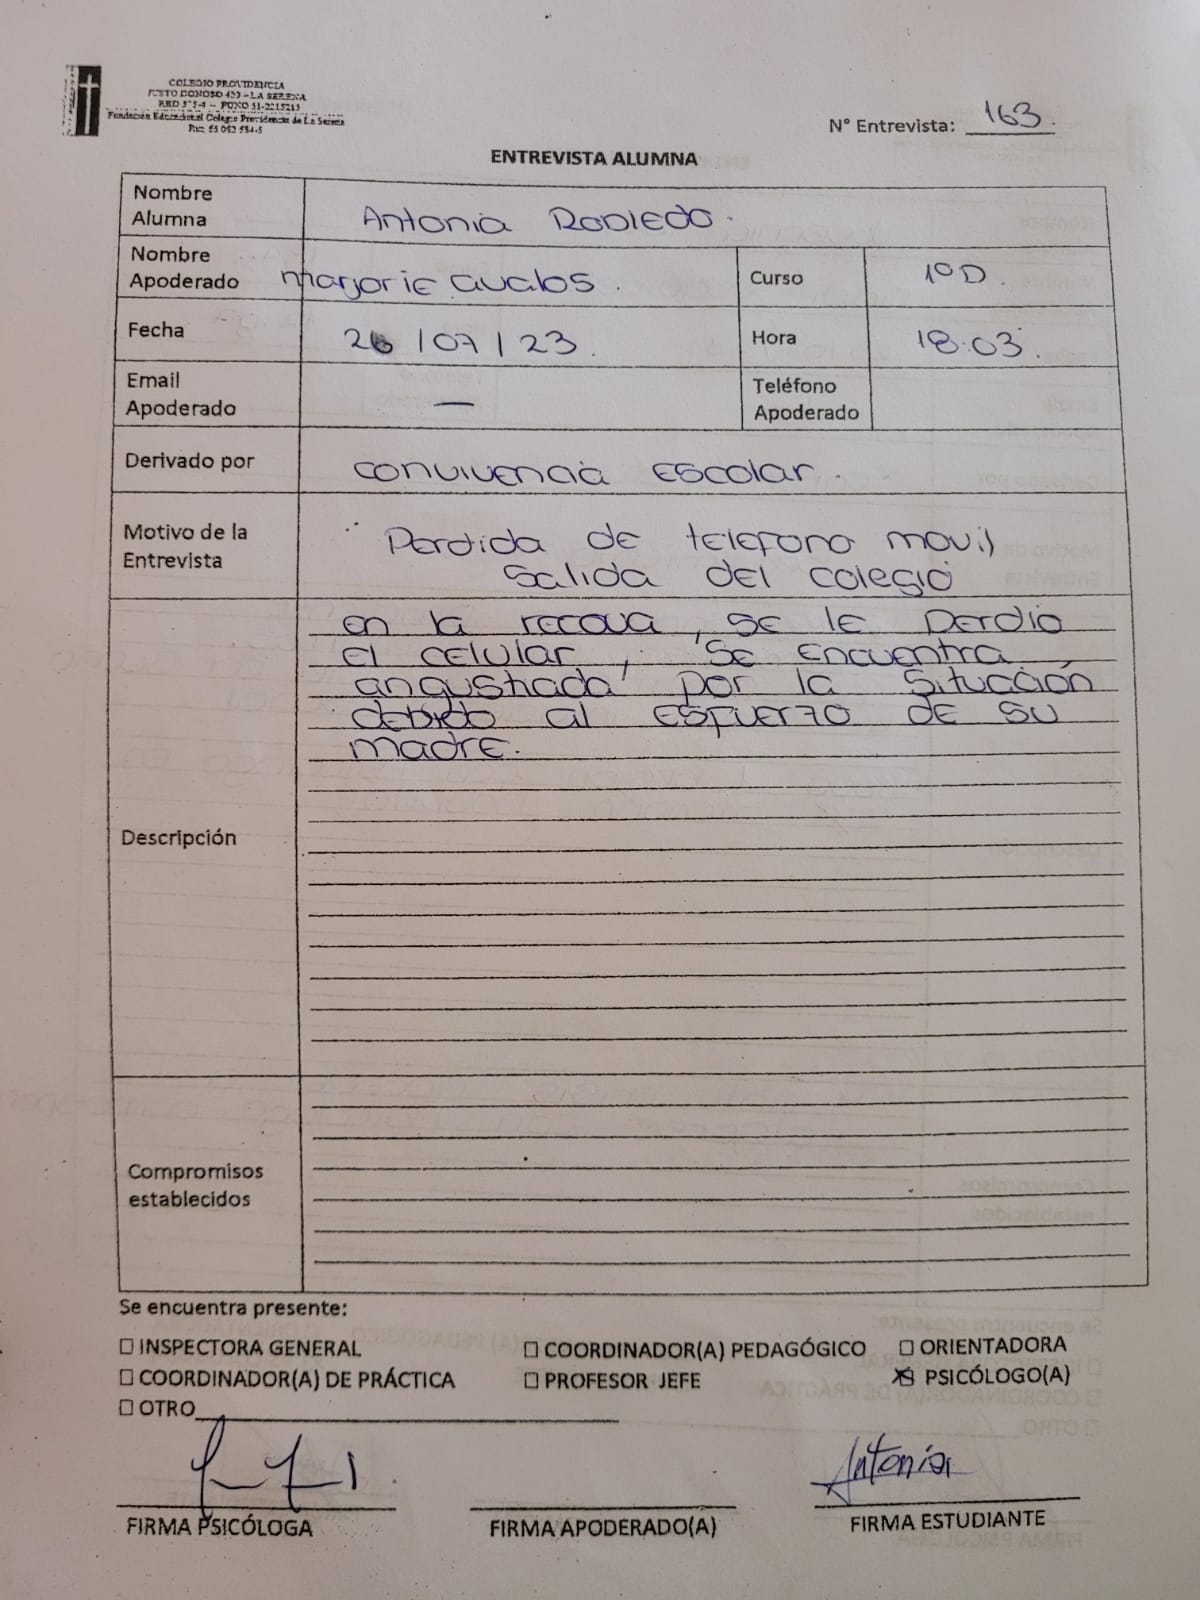 COLEGIO PROVIDENCIA
JUSTO DONOSO 420 - LA SERENA
FONO 51-2215213
Fundación Educacional Colegio Providencia de La Serena
N° Entrevista: 163.
ENTREVISTA ALUMNA
Nombre Alumna Antonia Robledo.
Nombre Apoderado Marjorie avalos. Curso 1° D.
Fecha 26/07/23. Hora 18:03.
Email Apoderado — Teléfono Apoderado
Derivado por convivencia escolar.
Motivo de la Entrevista Perdida de telefono movil
salida del colegio
en la recova, se le perdio
el celular, se encuentra
angustiada por la situación
debido al esfuerzo de su
madre.
Descripción
Compromisos establecidos
Se encuentra presente:
☐ INSPECTORA GENERAL ☐ COORDINADOR(A) PEDAGÓGICO ☐ ORIENTADORA
☐ COORDINADOR(A) DE PRÁCTICA ☐ PROFESOR JEFE ☒ PSICÓLOGO(A)
☐ OTRO
Antonia
FIRMA PSICÓLOGA FIRMA APODERADO(A) FIRMA ESTUDIANTE